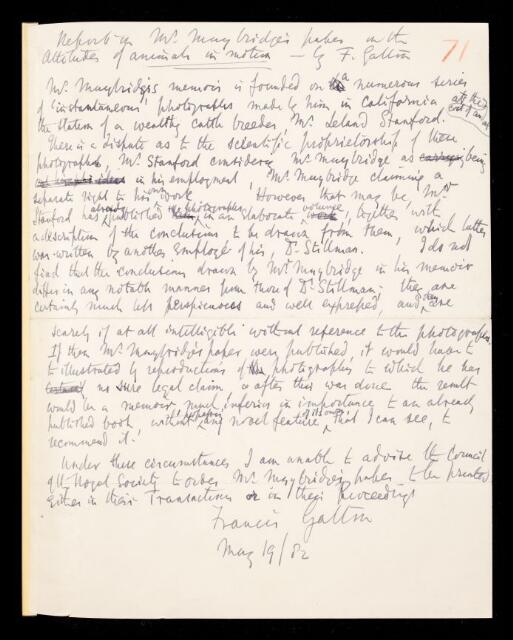 Report on Mr. Muybridge's paper on the
71
Attitudes of animals in motion — by F. Galton
Mr. Muybridge's memoir is founded on a numerous series
of 'instantaneous' photographs made by him in California, at the cost & on
the station of a wealthy cattle breeder, Mr. Leland Stanford.
There is a dispute as to the scientific proprietorship of these
photographs, Mr. Stanford considering Mr. Muybridge as being
in his employment, Mr. Muybridge claiming a
separate right to his own work. However that may be, Mr.
Stanford has already published the photographs in an elaborate volume, together with
a description of the conclusions to be drawn from them, which latter
was written by another employé of his, Dr. Stillman. I do not
find that the conclusions drawn by Mr. Muybridge in his memoir
differ in any notable manner from those of Dr. Stillman; they are
certainly much less perspicuous and well expressed, and they are
scarcely if at all intelligible without reference to the photographs.
If then Mr. Muybridge's paper were published, it would have to
be illustrated by reproductions of the photographs to which he has
no sure legal claim & after this was done the result
would be a memoir much inferior in importance to an already
published book, without possessing any novel feature of its own, that I can see, to
recommend it.
Under these circumstances I am unable to advise the Council
of the Royal Society to order Mr. Muybridge's paper to be printed
either in their Transactions or in their Proceedings
Francis Galton
May 19/82